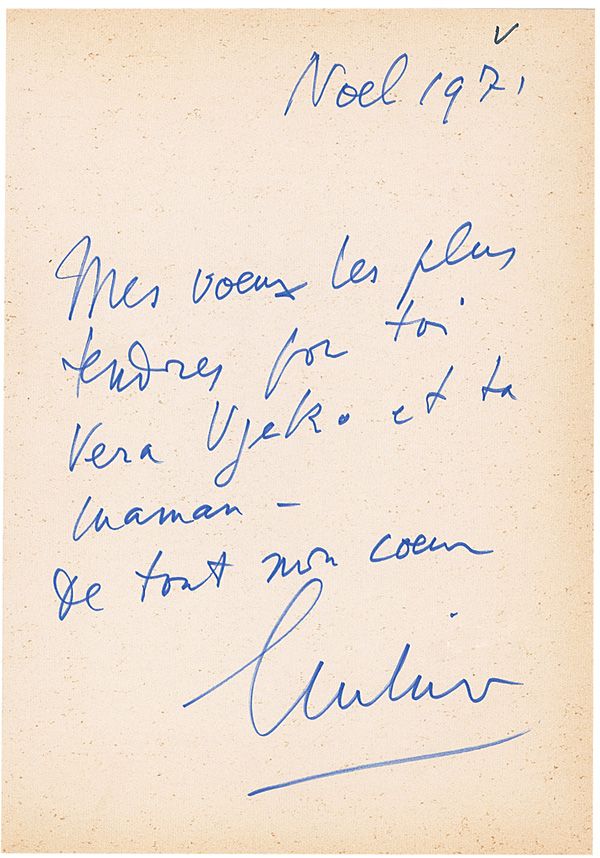 Noel 1971
Mes voeux les plus
tendres for toi
Vera Vjeko et ta
maman -
De tout mon coeur